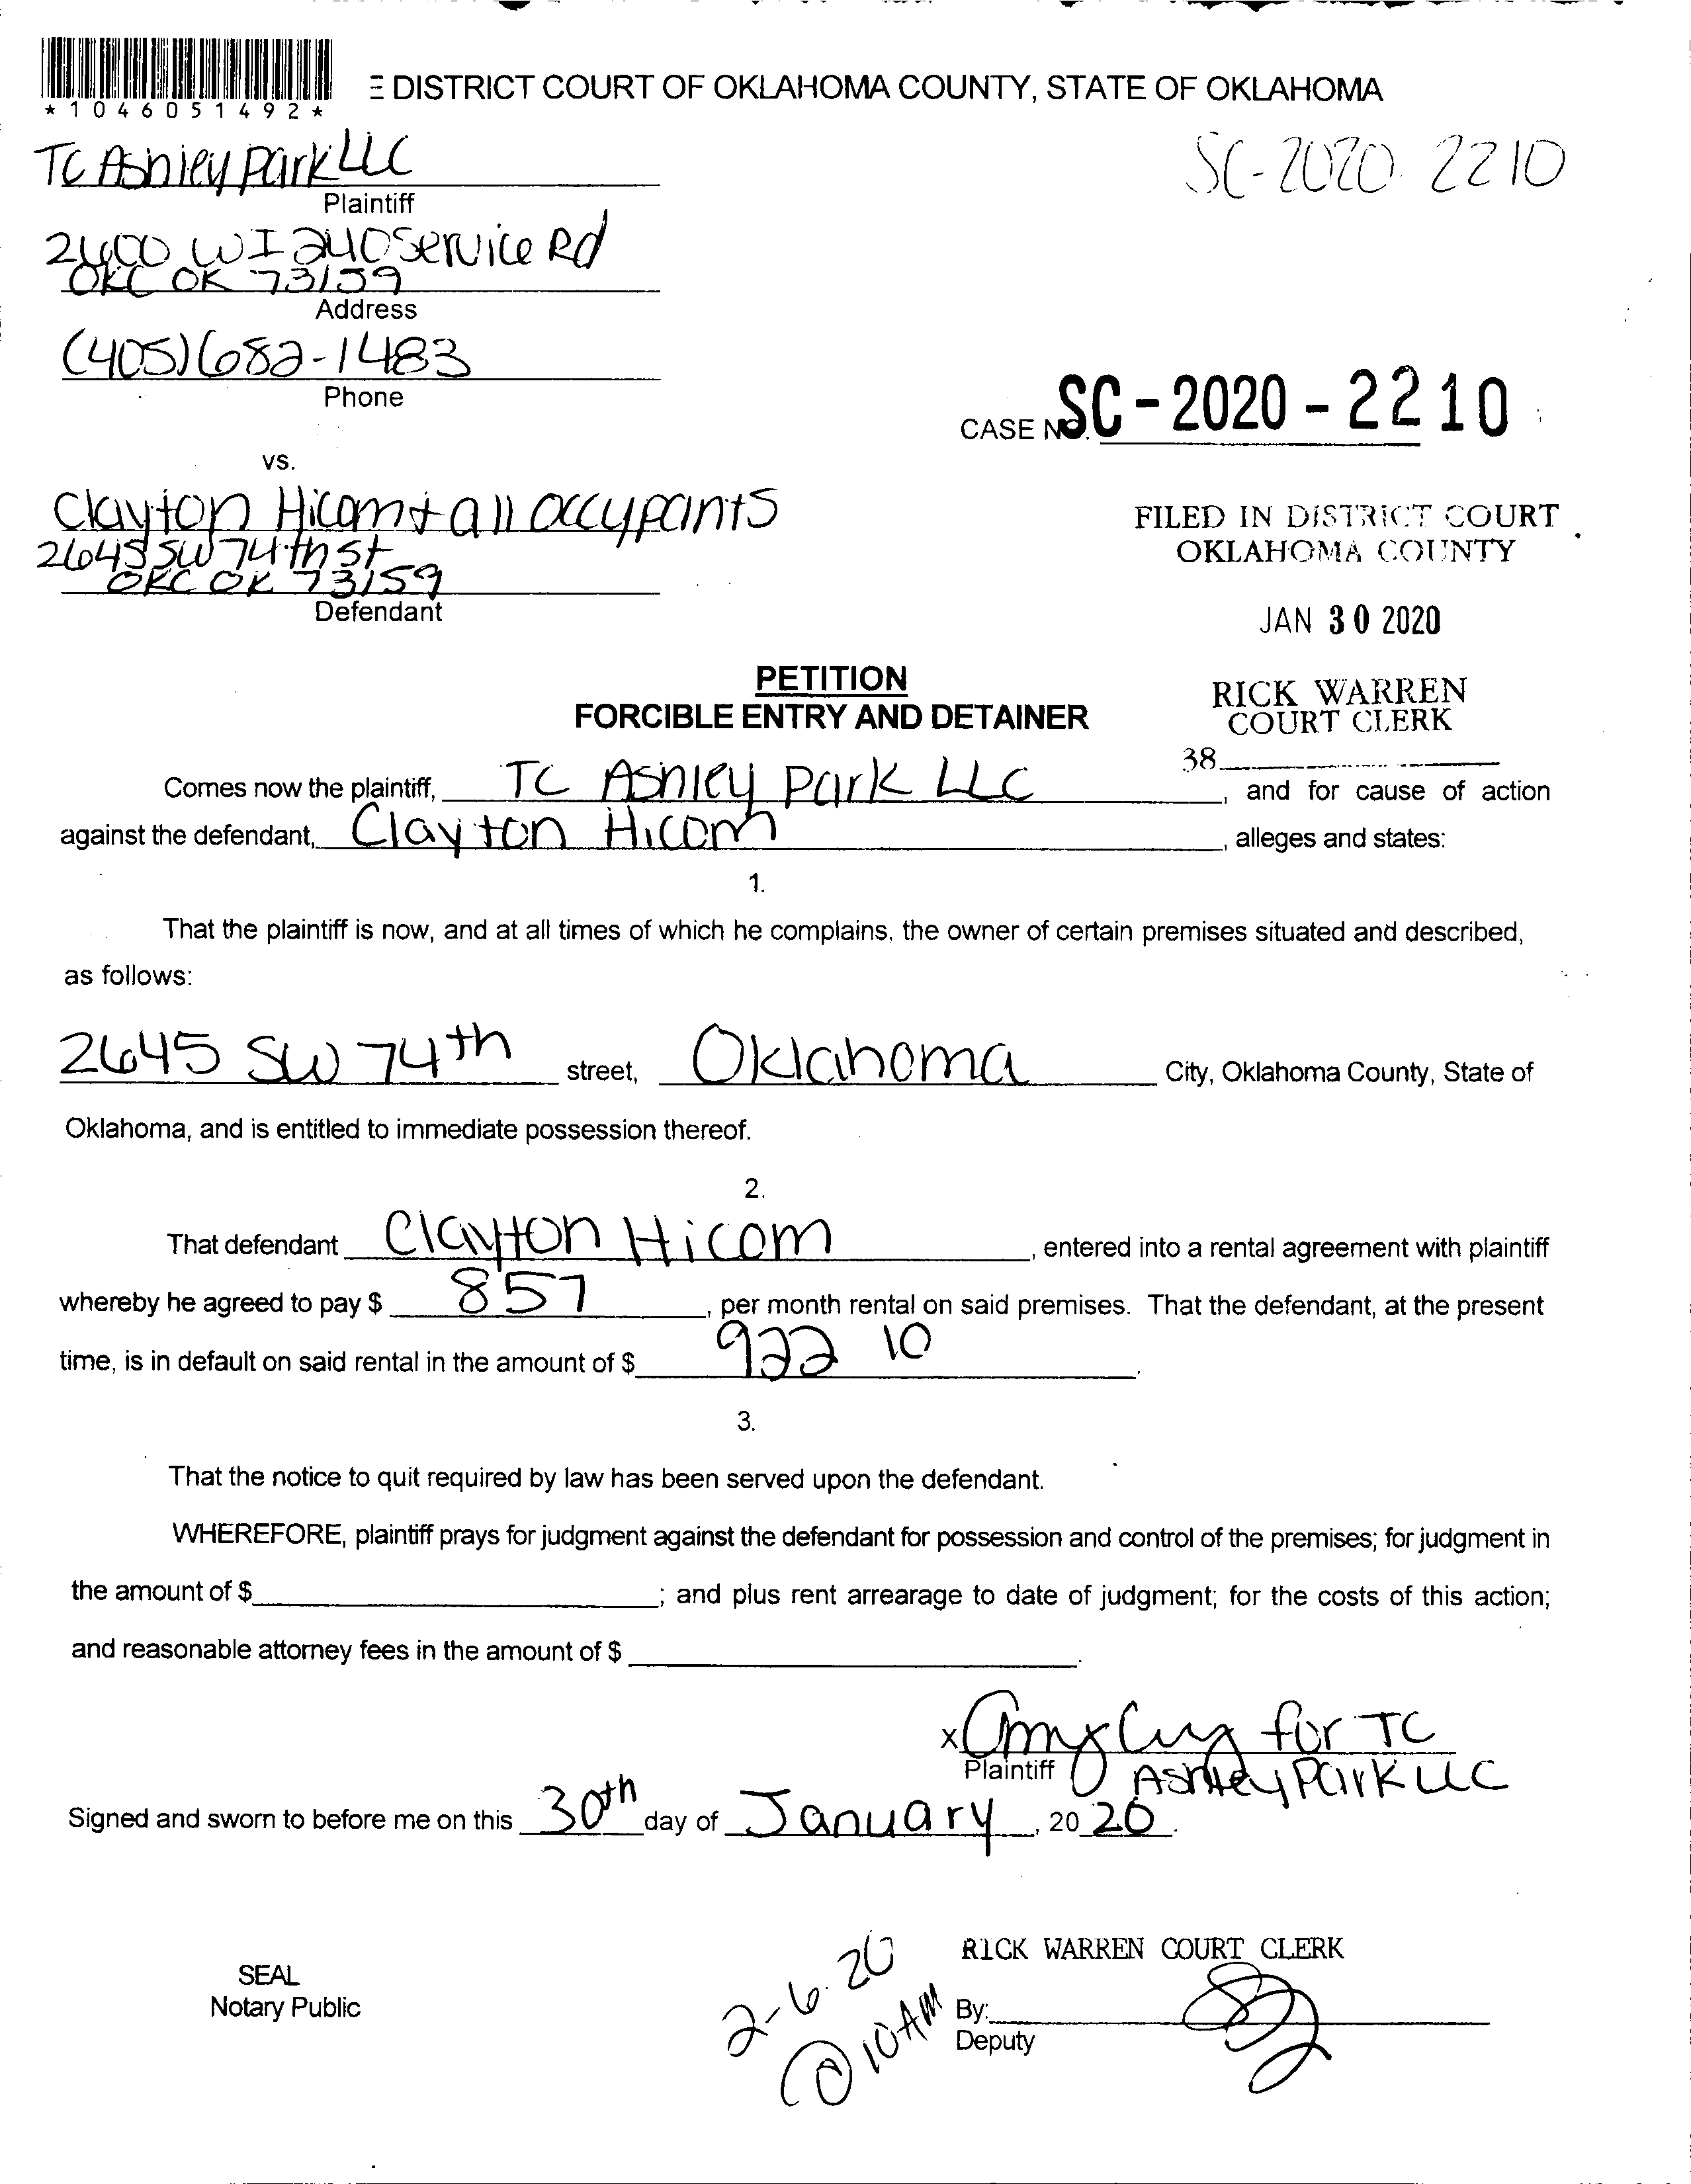 *1046051492*
E DISTRICT COURT OF OKLAHOMA COUNTY, STATE OF OKLAHOMA
TC Ashley Park LLC
SC-2020 2210
Plaintiff
2400 W I 240 Service Rd
OKC OK 73159
Address
(405)682-1483
Phone
CASE NO. SC-2020-2210
vs.
Clayton Hicom + all occupants
2645 SW 74th St
OKC OK 73159
Defendant
FILED IN DISTRICT COURT
OKLAHOMA COUNTY
JAN 30 2020
RICK WARREN
COURT CLERK
38
PETITION
FORCIBLE ENTRY AND DETAINER
Comes now the plaintiff, TC Ashley Park LLC, and for cause of action
against the defendant, Clayton Hicom, alleges and states:
1.
That the plaintiff is now, and at all times of which he complains, the owner of certain premises situated and described,
as follows:
2645 SW 74th street, Oklahoma City, Oklahoma County, State of
Oklahoma, and is entitled to immediate possession thereof.
2.
That defendant Clayton Hicom, entered into a rental agreement with plaintiff
whereby he agreed to pay $ 857, per month rental on said premises. That the defendant, at the present
time, is in default on said rental in the amount of $ 922 10.
3.
That the notice to quit required by law has been served upon the defendant.
WHEREFORE, plaintiff prays for judgment against the defendant for possession and control of the premises; for judgment in
the amount of $ ; and plus rent arrearage to date of judgment; for the costs of this action;
and reasonable attorney fees in the amount of $ .
x Amy for TC
Plaintiff Ashley Park LLC
Signed and sworn to before me on this 30th day of January, 2020.
SEAL
Notary Public
2-6-20
@ 10AM
RICK WARREN COURT CLERK
By:
Deputy